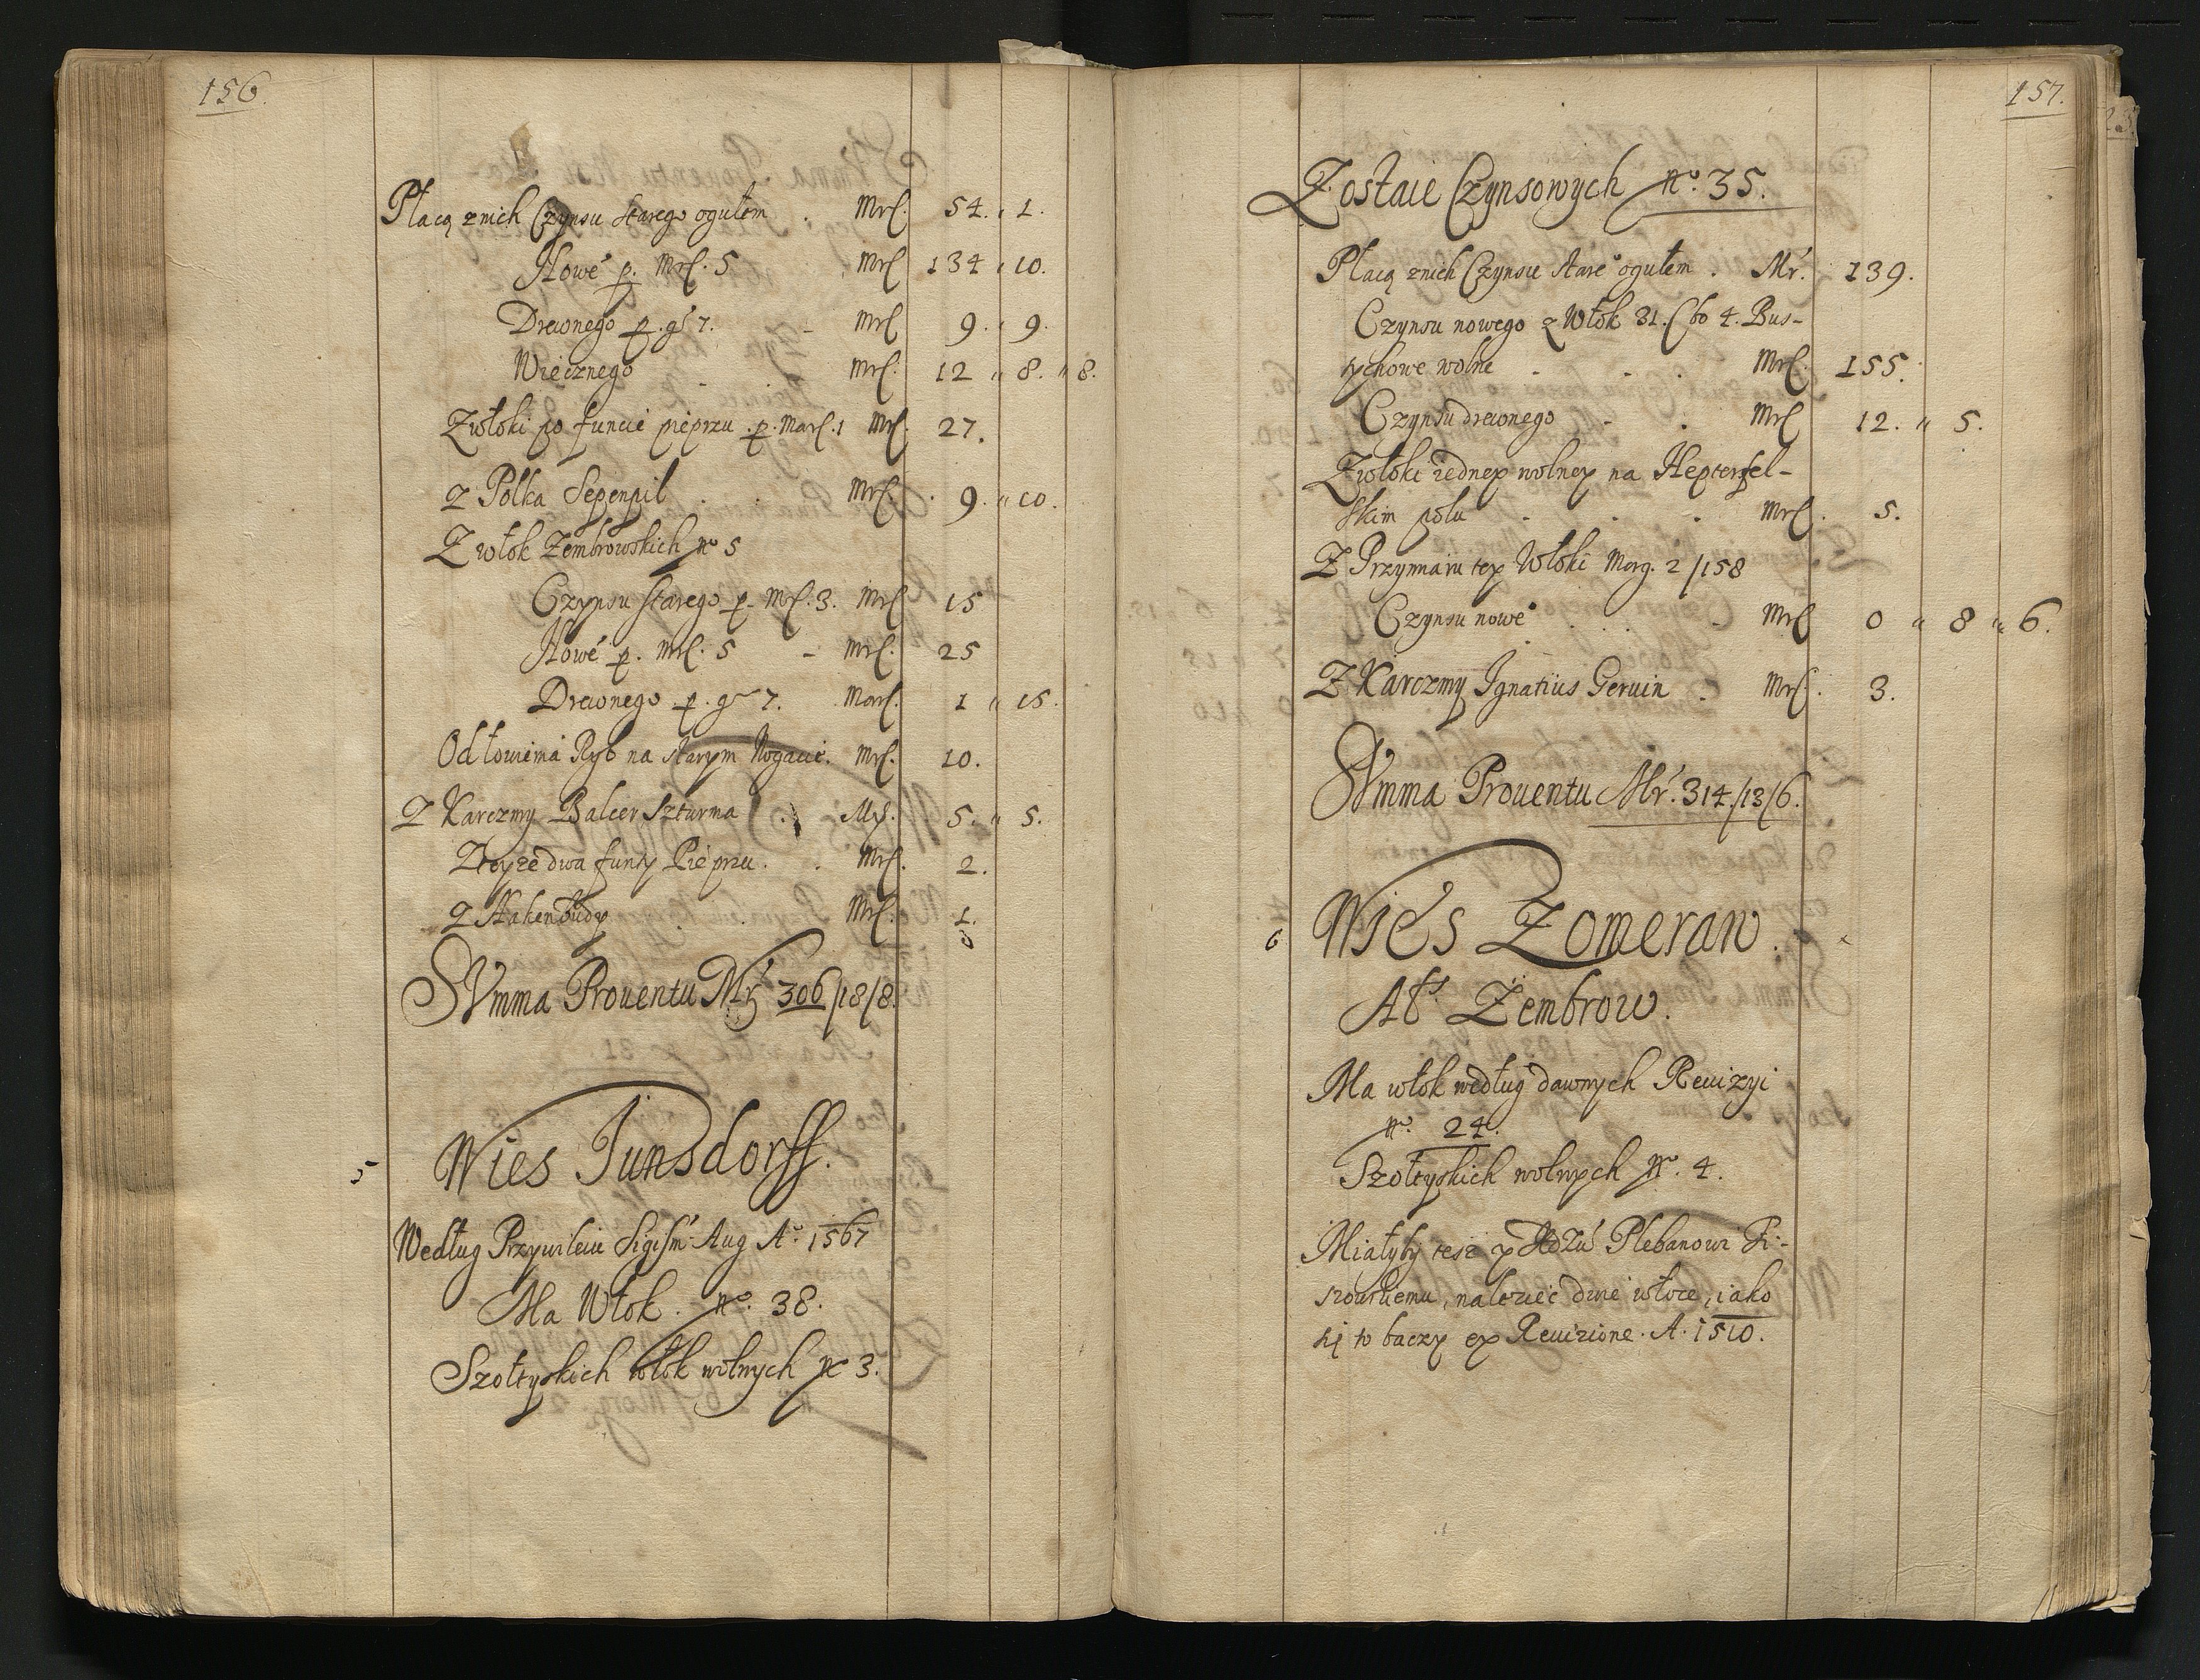 156.
Płacą znich Czynsu starego ogułem . Mrl. 54. „ 1.
Nowe° p. Mrl. 5 . Mrl 134 „ 10.
Drewnego p. gl 7. - Mrl 9. „ 9.
Wiecznego - . Mrl. 12 „ 8. „ 8.
Zwłoki po funcie pieprzu . p. Marl. 1 Mrl. 27.
Z Polka Sepenpil . . Mrl. 9. „ 10.
Z włok Zembrowskich N° 5
Czynsu starego p. Mrl. 3. Mrl 15
Nowe° p. Mrl. 5 - Mrl. 25
Drewnego p. gl 7. Marl. 1 „ 15.
Od łowienia Ryb na starym Nogacie. Mrl. 10.
Z Karczmy Balcer Szturma . Mrl. 5. „ 5.
Zteyze dwa funty Pieprzu . . Mrl. 2.
Z Hakenbudy . Mrl. 1.
SVmma Prouentu Mr 306/18/8.
5 Wies Junsdorff.
Według Przywileiu Sigism: Aug A° 1567
Ma Włok . N° 38.
Szołtyskich włok wolnych N° 3.
157.
Zostaie Czynsowych N° 35.
Płacą znich Czynsu stare° ogułem . Mr. 139.
Czynsu nowego z Włok 31. (bo 4. Bus-
sychowe wolne - - . Mrl. 155.
Czynsu drewnego - . Mrl 12. „ 5.
Zwłoki iedney wolney na Hepterfel-
skim polu - . . Mrl. 5.
Z Przymiaru tey Włoki Morg. 2/158
Czynsu nowe° . . - Mrl 0 „ 8 „ 6.
Z Karczmy Ignatius Geruin . Mrl. 3.
SVmma Prouentu Mr. 314/13/6.
6 Wies Zomeraw .
Als Zembrow.
Ma włok według dawnych Rewizyi
N° 24.
Szołtyskich wolnych N° 4.
Miałyby tesz y Plebanowi Fi-
szowskiemu, nalezieć dwie włoce, iako
się to baczy ex Reuizione. A. 1510.